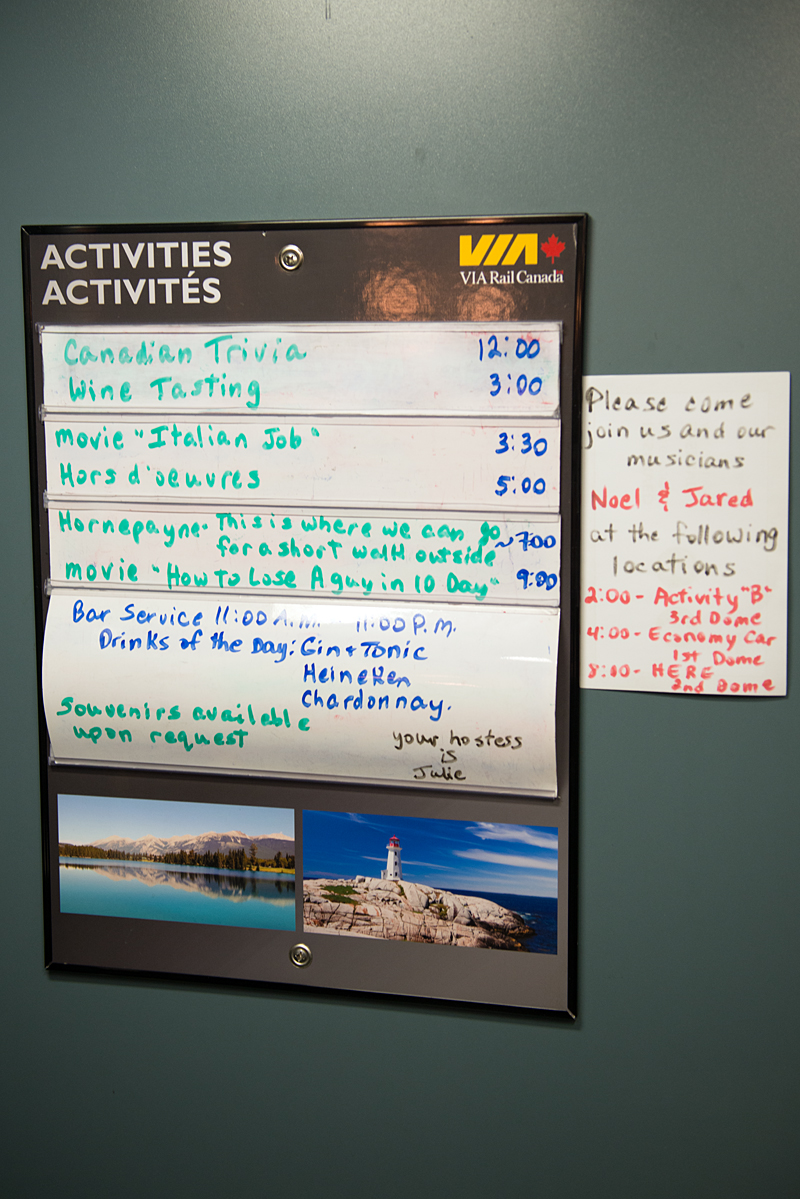 ACTIVITIES
ACTIVITÉS
VIA
VIA Rail Canada
Canadian Trivia 12:00
Wine Tasting 3:00
movie "Italian Job" 3:30
Hors d'oeuvres 5:00
Hornepayne- This is where we can go
for a short walk outside ~7:00
movie "How To Lose A guy in 10 Day" 9:00
Bar Service 11:00 A.M. - 11:00 P.M.
Drinks of the Day: Gin + Tonic
Heineken
Chardonnay.
Souvenirs available
upon request
your hostess
is
Julie
Please come
join us and our
musicians
Noel & Jared
at the following
locations
2:00 - Activity "B"
3rd Dome
4:00 - Economy Car
1st Dome
8:00 - HERE
2nd Dome